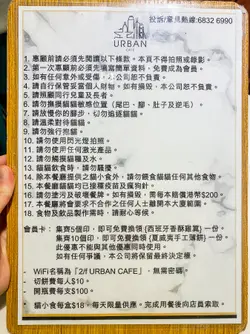 投訴/意見熱線:6832 6990
URBAN
CAFE
1. 惠顧前請必須先閱讀以下條款。本頁不得拍照或錄影。
2. 第一次惠顧前必須先填寫簡單資料，免費成為會員。
3. 如有任何意外或受傷，本公司恕不負責。
4. 請自行保管妥當個人財物。如有損毀，本公司恕不負責。
5. 請照顧同行兒童及長者。
6. 請勿撫摸貓貓敏感位置（尾巴、腳、肚子及逆毛）。
7. 請放慢你的腳步，切勿追逐貓貓。
8. 請溫柔對待貓貓。
9. 請勿強行抱貓。
10. 請勿使用閃光燈拍照。
11. 請勿使用任何激光產品。
12. 請勿觸摸貓糧及水。
13. 貓貓飲食時，請勿騷擾。
14. 除本餐廳提供之貓小食外，請勿餵食貓貓任何其他食物。
15. 本餐廳貓貓均已接種疫苗及驅狗針。
16. 請勿塗污及破壞餐牌。如有損毀，需每本賠償港幣$200。
17. 本餐廳將會要求不合作之任何人士離開本大廈範圍。
18. 食物及飲品製作需時，請耐心等候。
會員卡： 集齊5個印，即可免費換領 {西班牙香酥雞翼} 一份。
集齊10個印，即可免費換領 {夏威夷手工薄餅} 一份。
此優惠不能與其他優惠同時使用。
如有任何爭議，本公司將保留最終決定權。
WiFi名稱為「2/f URBAN CAFE」，無需密碼。
切餅費每人$10。
開瓶費每支$100。
貓小食每盒$18。每天限量供應。完成用餐後向店員索取。